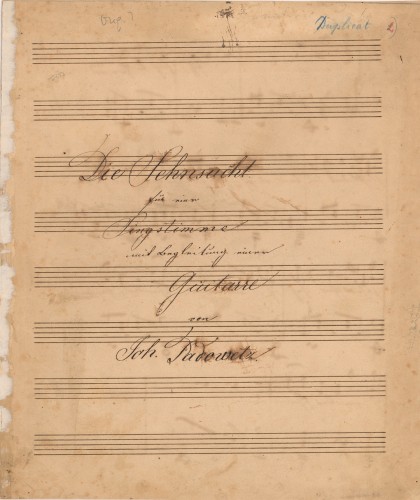 Duplicat 2)
Die Sehnsucht
für eine
Singstimme
mit Begleitung einer
Guitarre
von
Joh. Padowetz